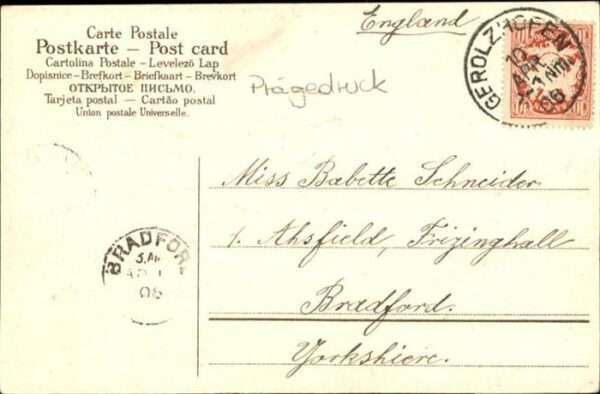 England
Carte Postale
Postkarte – Post card
Cartolina Postale – Levelező Lap
Dopisnice – Brefkort – Briefkaart – Brevkort
ОТКРЫТОЕ ПИСЬМО.
Tarjeta postal — Cartão postal
Union postale Universelle.
Prägedruck
GEROLZHOFEN
10
APR
NM
06
Miss Babette Schneider
1. Ahsfield, Frizinghall
Bradford.
Yorkshiere.
BRADFOR
06